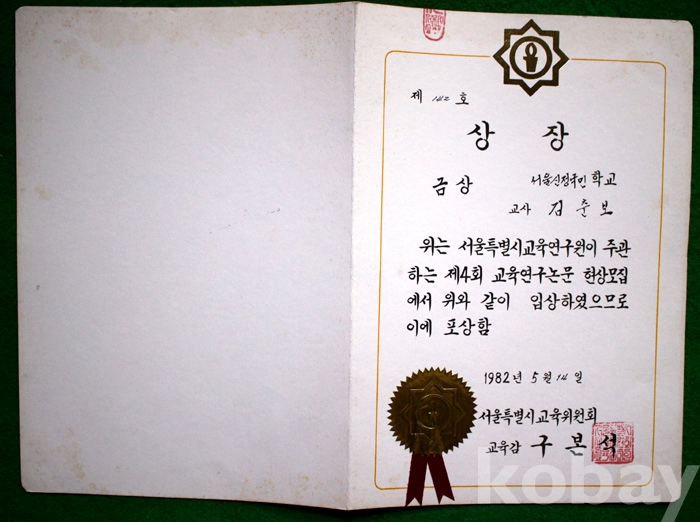 제 142 호
상 장
금상 서울신정국민학교
교사 김춘보
위는 서울특별시교육연구원이 주관
하는 제4회 교육연구논문 현상모집
에서 위와 같이 입상하였으므로
이에 포상함
1982년 5월 14일
서울특별시교육위원회
교육감 구본석
kobay